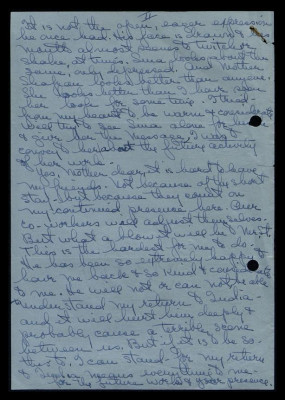 II
It is not the open, eager expression
he once had. His face is drawn & his
mouth almost seems to twitch or
shake, at times. Lima looks about the
same, only depressed. And Mother
looks better than anyone.
She looks better than I have seen
her look for some time. I tried
from my heart to be warm &
will try to see Lima alone for
& give her the message & way I
convey to her about the future activity
of her work.
Yes, Mother dear, it is hard to leave
my friends. Not because of my short
stay - but because they count on
my continued presence here. Our
co-workers will adjust themselves.
But what a blow it will be to M.
This is the hardest for me to do.
He has been so extremely happy to
have me back & so kind & considerate
to me. He will not or can not
understand my return to India -
and it will hurt him deeply &
probably cause a terrible scene
between us. But if it is to be so -
this too I can stand - for my return
to India means everything to me -
for the future work & your presence.